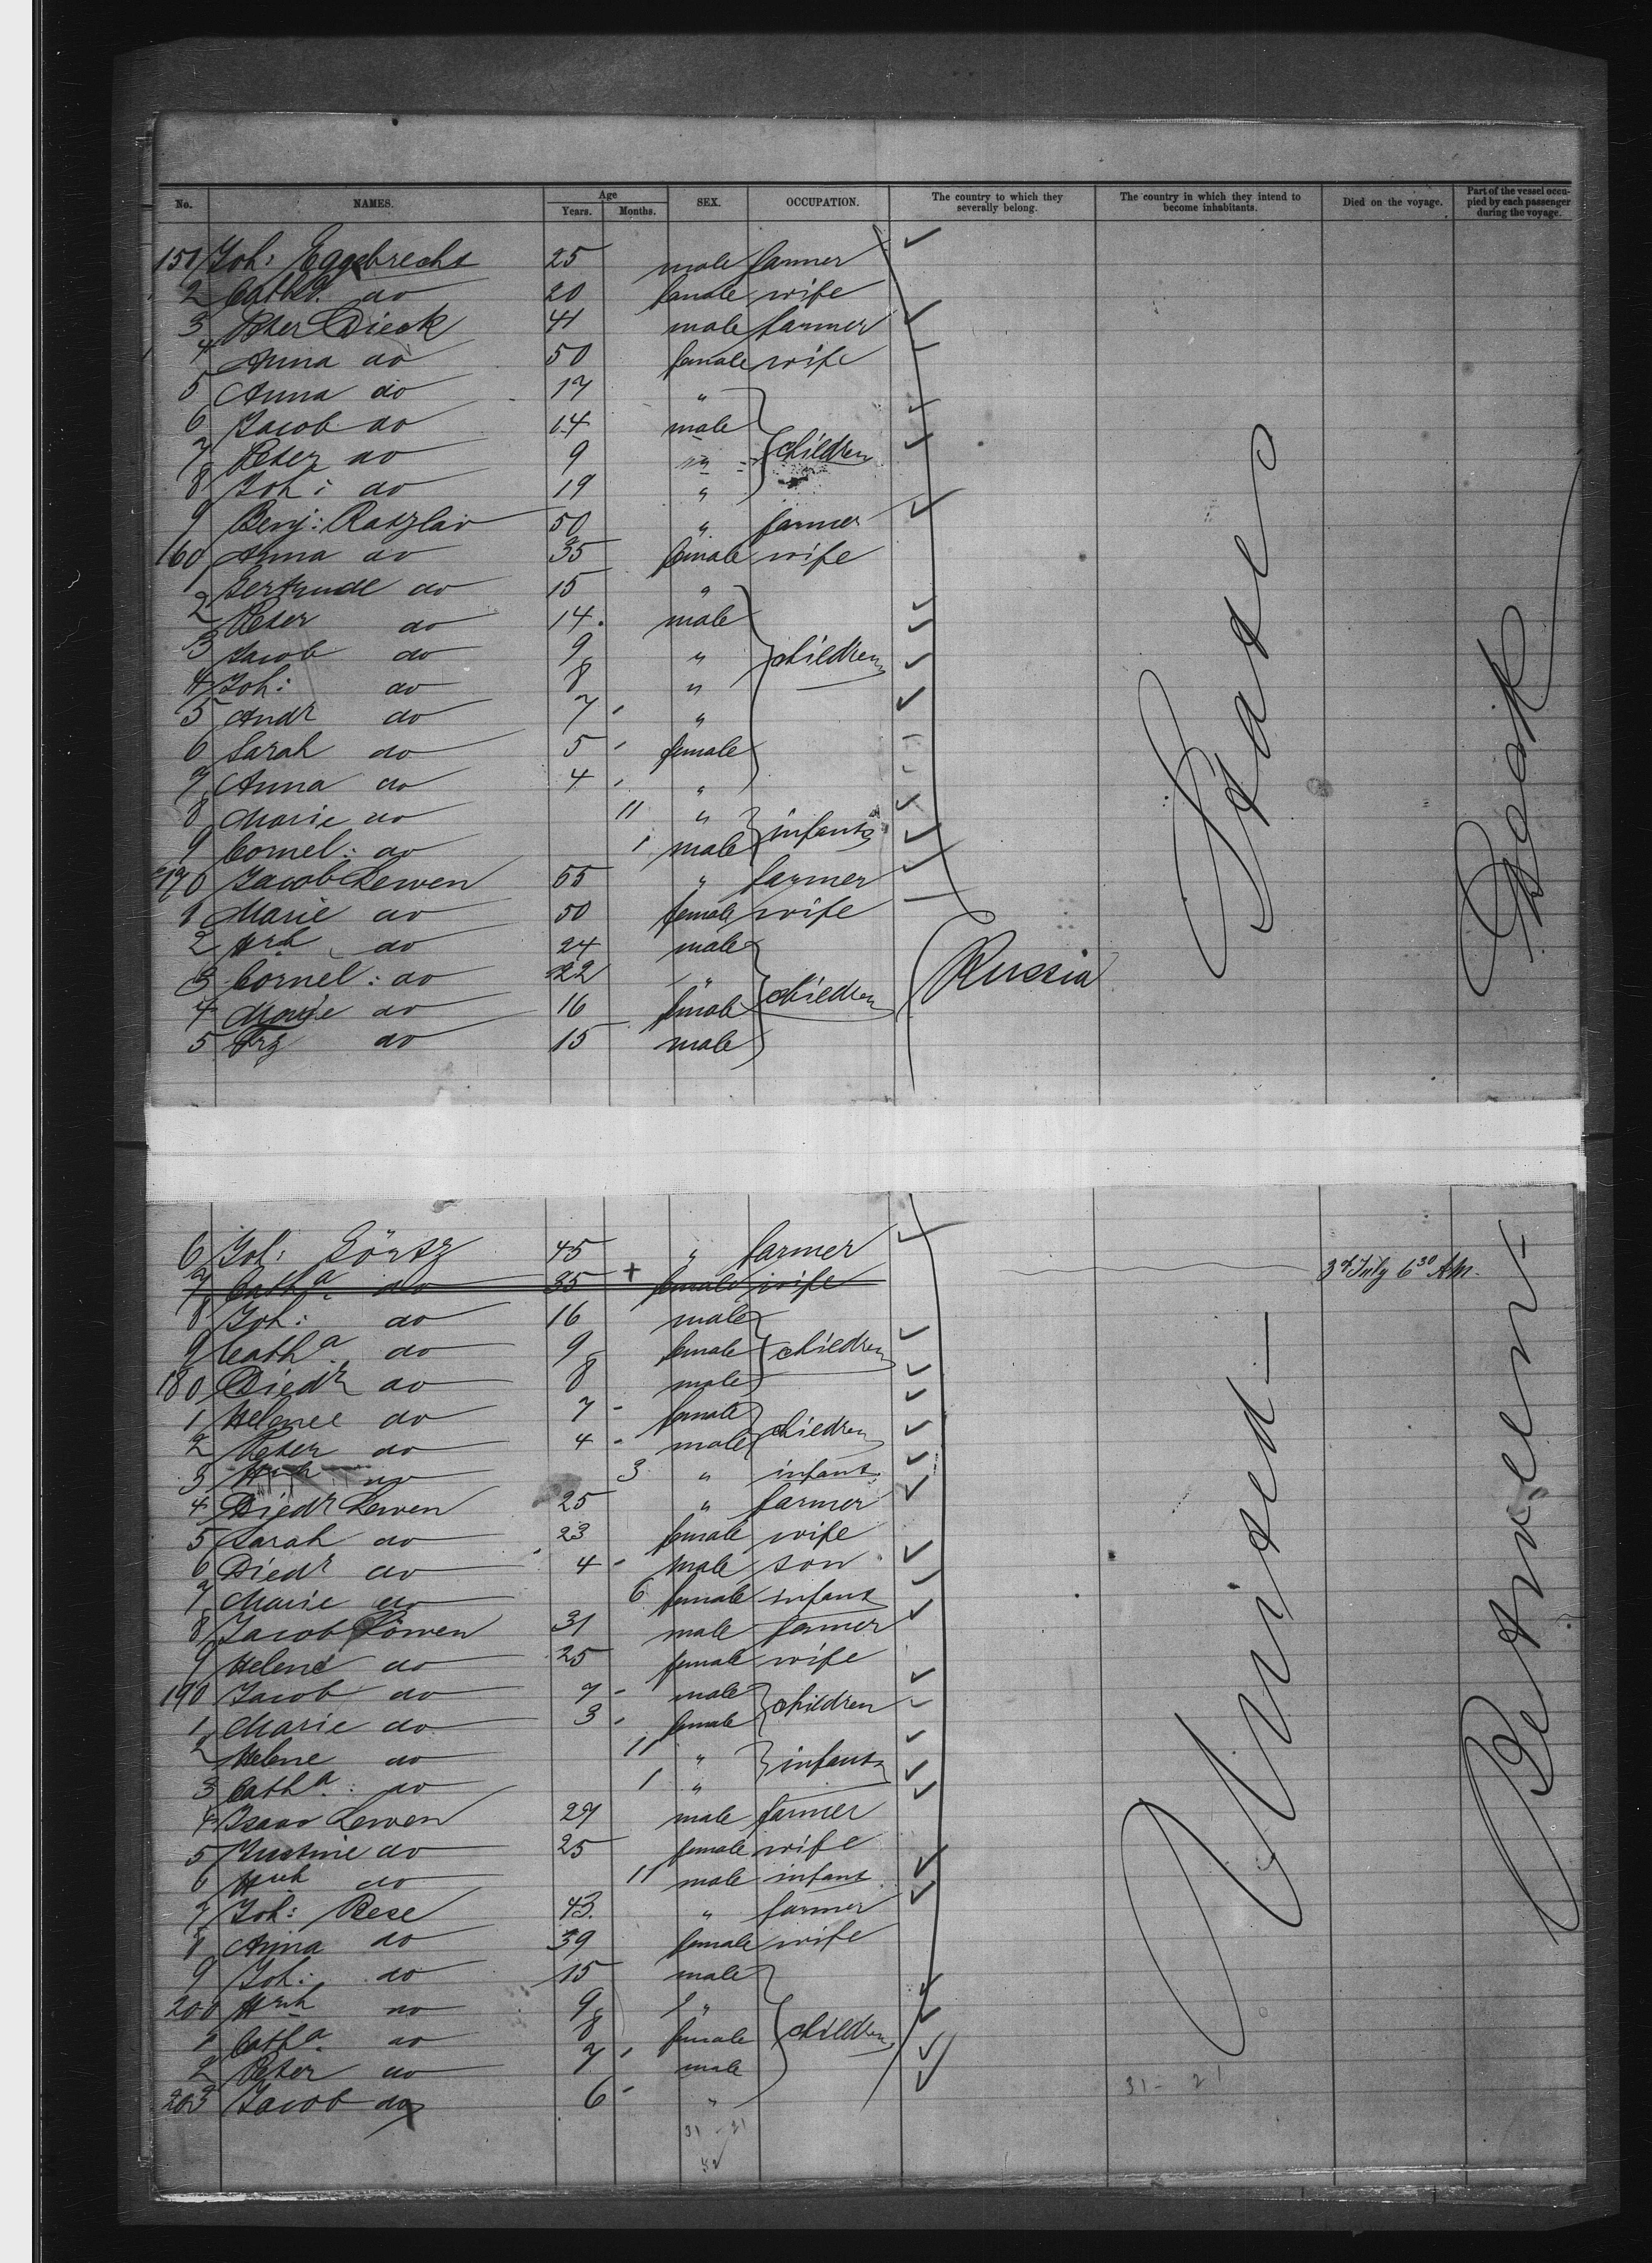 No. NAMES. Age Years. Months. SEX. OCCUPATION. The country to which they severally belong. The country in which they intend to become inhabitants. Died on the voyage. Part of the vessel occupied by each passenger during the voyage.
151 Joh: Eggebrecht 25 male farmer
2 Catha. do 20 female wife
3 Peter Dieck 41 male farmer
4 Anna do 50 female wife
5 Anna do 17 "
6 Jacob do 14 male
7 Peter do 9 " children
8 Joh: do 19 "
9 Benj: Ratzlav 50 " farmer
160 Anna do 35 female wife
1 Gertrude do 15 "
2 Peter do 14 male
3 Jacob do 9 " children
4 Joh: do 8 "
5 Andr do 7 "
6 Sarah do 5 female
7 Anna do 4 "
8 Marie do 11 " infants
9 Cornel: do 1 male
170 Jacob Lewen 55 " farmer
1 Marie do 50 female wife
2 Hrh do 24 male
3 Cornel: do 22 " children Russia
4 Marie do 16 female
5 Frz do 15 male
6 Joh: Görtz 45 " farmer
7 Catha. do 35 + female wife 3d July 6 30 AM.
8 Joh: do 16 male
9 Catha do 9 female children
180 Diedr do 8 male
1 Helene do 7 female
2 Peter do 4 male children
3 Hrh do 3 " infant
4 Diedr Lewen 25 " farmer
5 Sarah do 23 female wife
6 Diedr do 4 male son
7 Marie do 6 female infant
8 Jacob Löwen 31 male farmer
9 Helene do 25 female wife
190 Jacob do 7 male children
1 Marie do 3 female
2 Helene do 11 " infants
3 Catha: do 1 "
4 Isaac Lewen 27 male farmer
5 Justine do 25 female wife
6 Hrh do 11 male infant
7 Joh: Bese 43 " farmer
8 Anna do 39 female wife
9 Joh: do 15 male
200 Hrh do 9 "
1 Catha. do 8 female children
2 Peter do 7 male
203 Jacob do 6 "
31 - 21
31 - 21
United States
Between Deck